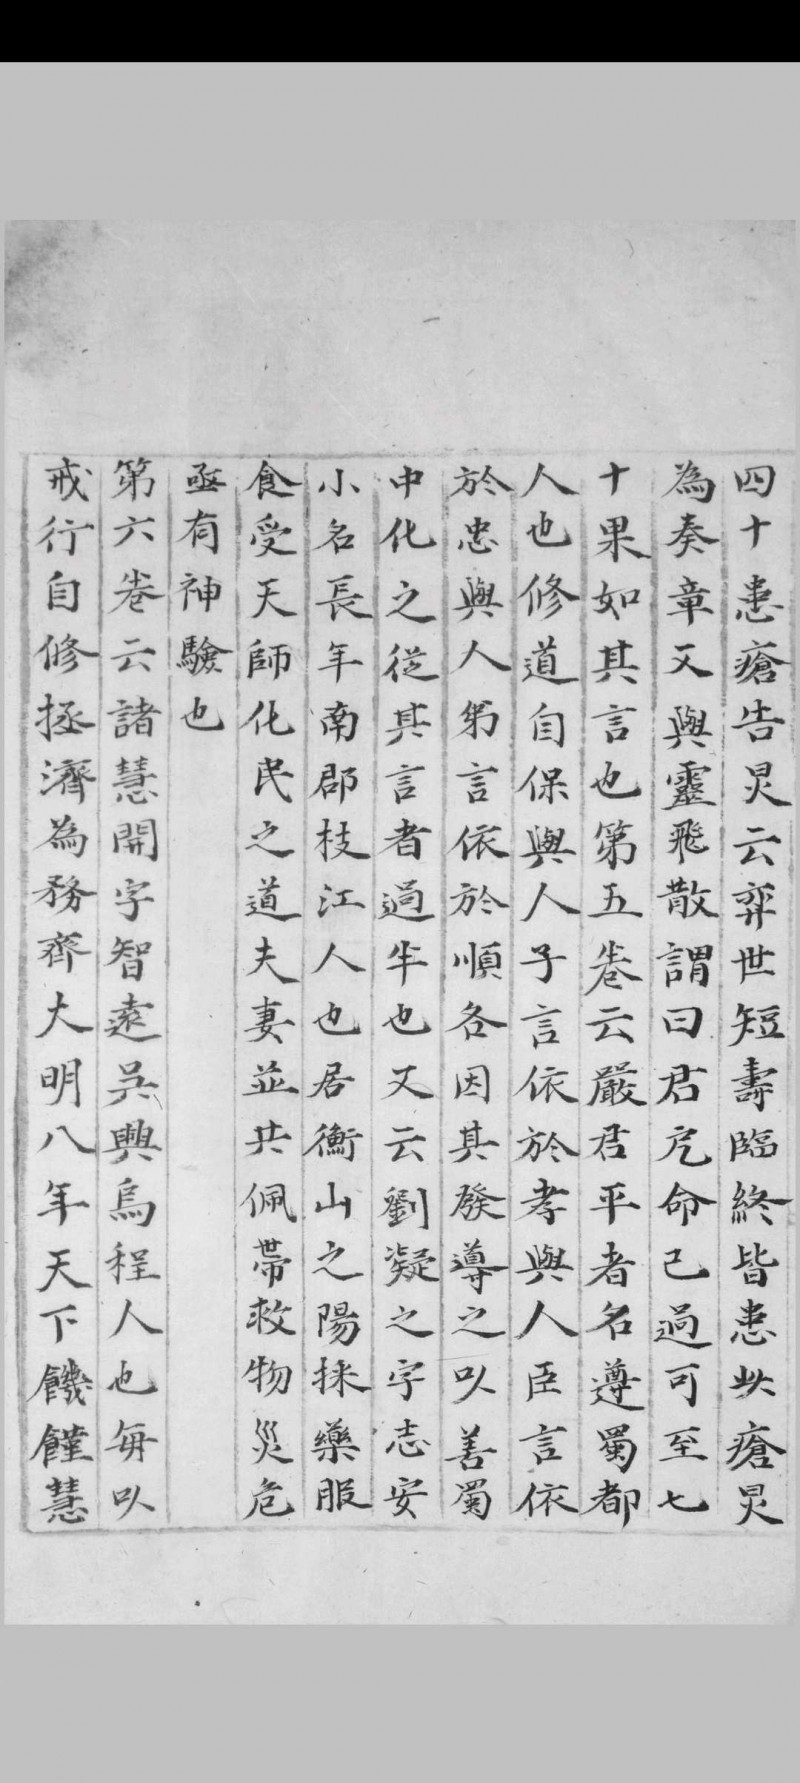 四十患瘡告炅云弈世短壽臨終皆患此瘡炅
為奏章又與靈飛散謂曰君厄命已過可至七
十果如其言也第五卷云嚴君平者名遵蜀都
人也修道自保與人子言依於孝與人臣言依
於忠與人弟言依於順各因其發導之以善蜀
中化之從其言者過半也又云劉凝之字志安
小名長年南郡枝江人也居衡山之陽採藥服
食受天師化民之道夫妻並共佩帶救物災危
亟有神驗也
第六卷云諸慧開字智遠吳興烏程人也每以
戒行自修拯濟為務齊大明八年天下饑饉慧